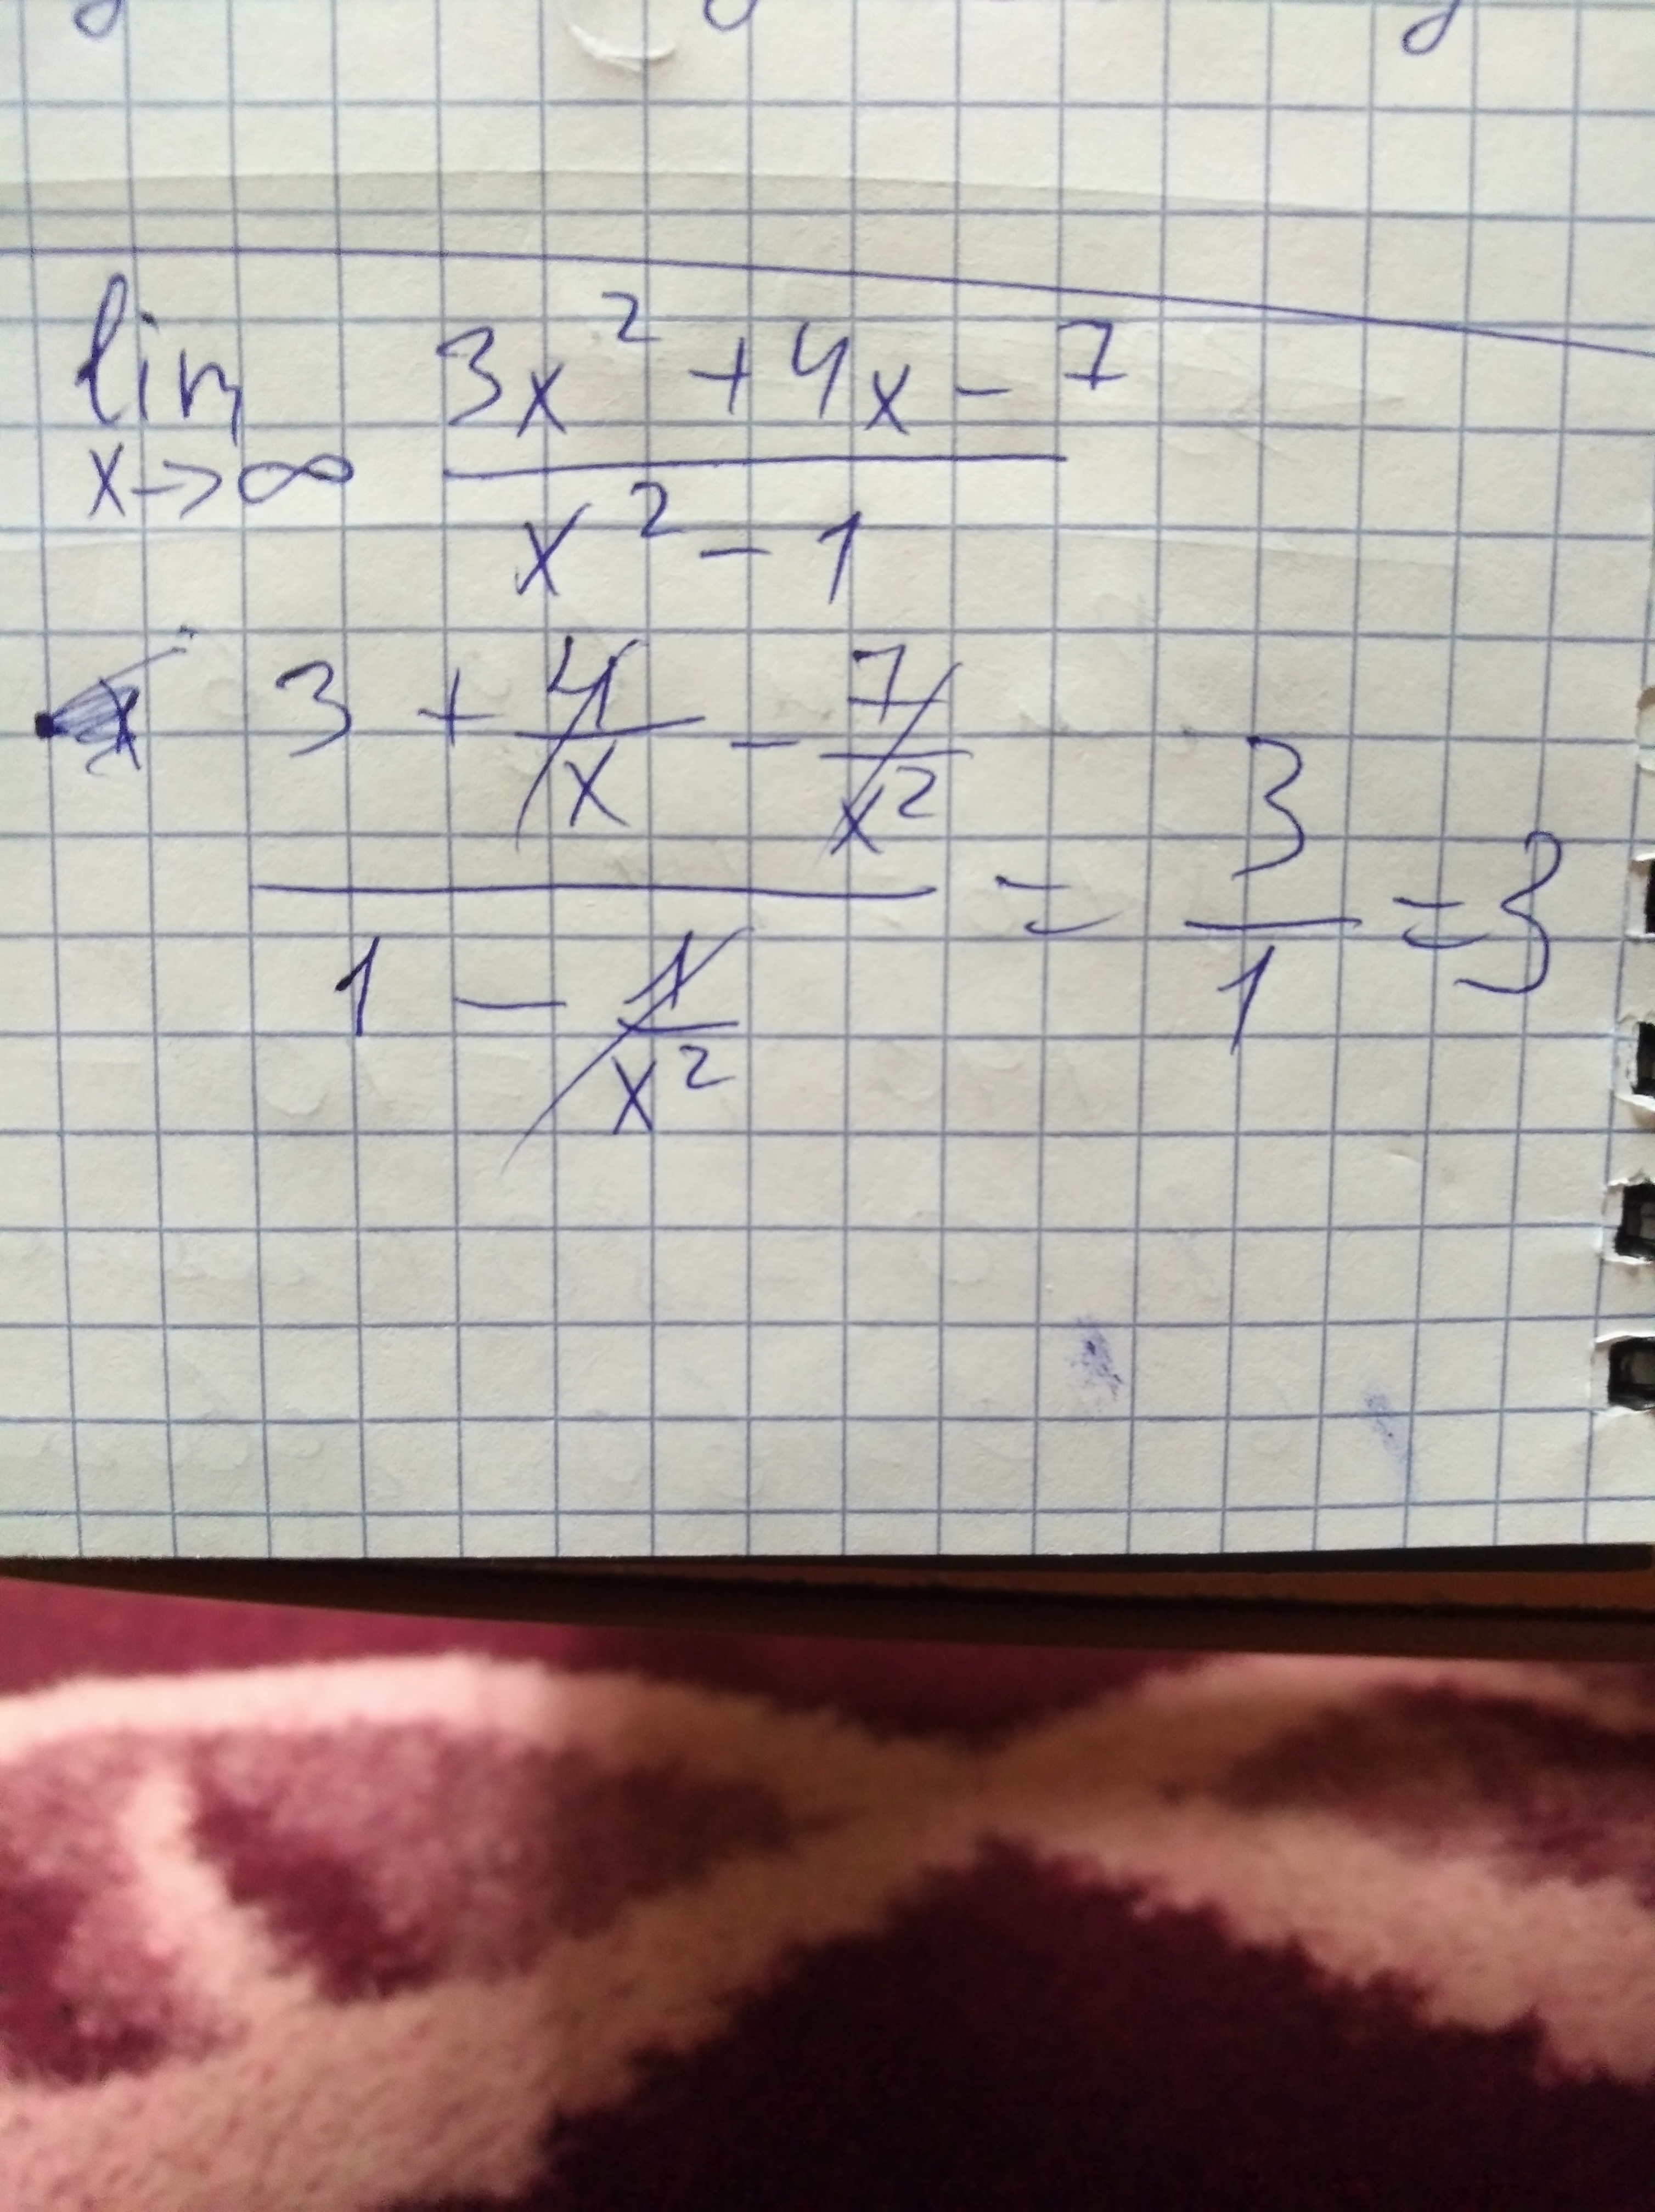 lim x→∞ (3x² + 4x - 7) / (x² - 1)
(3 + 4/x - 7/x²) / (1 - 1/x²) = 3/1 = 3